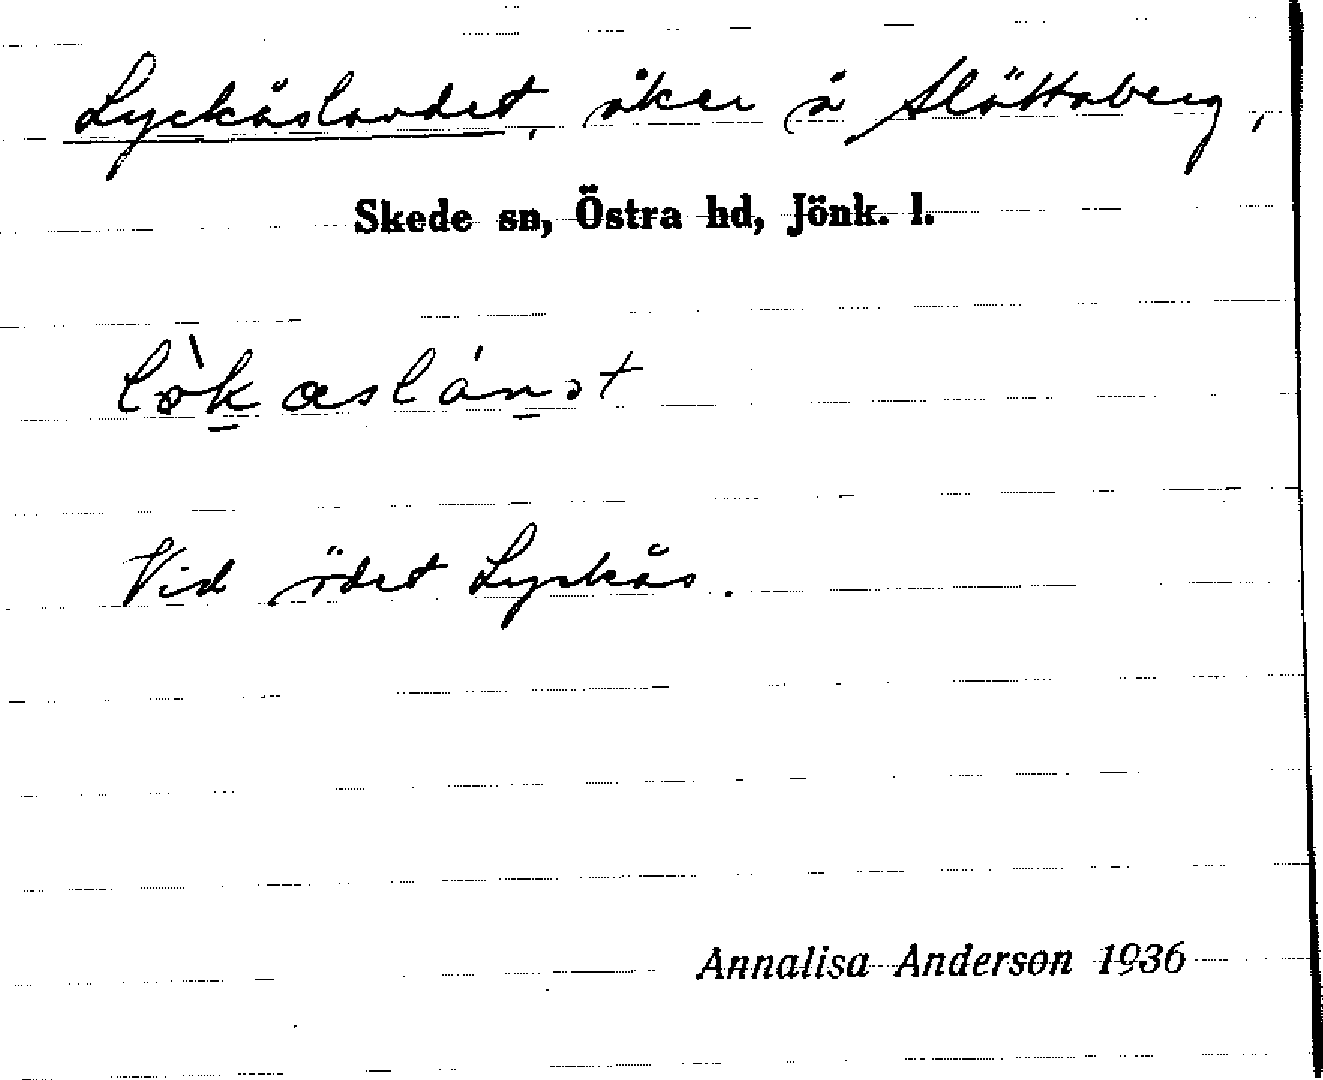 Lyckåslandet, åker å Slättaberg,
Skede sn, Östra hd, Jönk. l.
Vid ödet Lyckås.
Annalisa Anderson 1936